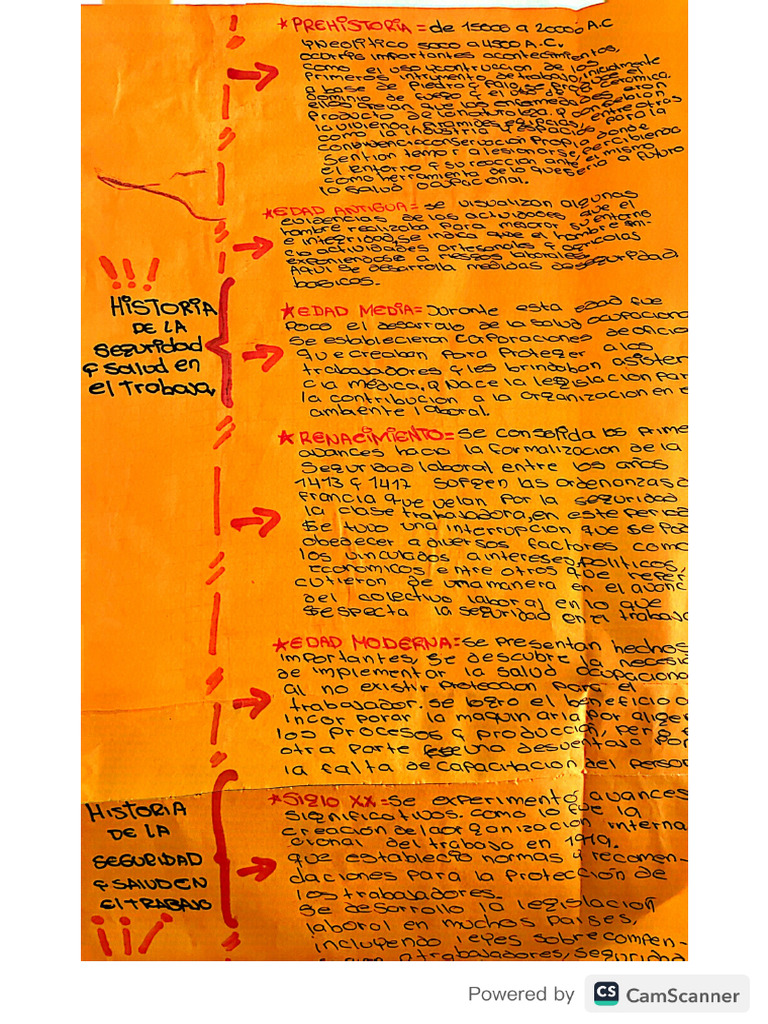 * PREHISTORIA = de 15000 a 20000 A.C
y neolitico 5000 a 4500 A.C.
ocurre importantes acontecimientos,
como el uso y contruccion de los
Primeros intrumento de trabajo, inicialmente
a base de Piedra y Palo
dominio de fuego y el uso ceramica.
que las enfermedades eran
Producto de la naturaleza y concebian
la vivienda, piramides egipcias, entre otros
como la industria y espacio para la
convivencia conservacion Propia donde
sentian temor a lesionarse, percibiendo
el entorno y su reaccion ante el mismo
como herramienta de lo que seria a futuro
la salud ocupacional.
* EDAD ANTIGUA = se visualizan algunas
evidencias de las actividades que el
hombre realizaba para mejorar su entorno
e integridad, se indica que el hombre ini-
cia actividades artesanales y agricolas
exponiendose a riesgos laborales.
Aqui se desarrolla medidas de seguridad
basicas.
!!!
HISTORIA
DE LA
Seguridad
y salud en
el Trabajo
* EDAD MEDIA = Durante esta edad fue
Poco el desarrollo de la salud ocupaciona
se establecieron corporaciones de oficio
que creaban para Proteger a los
trabajadores y les brindaban asisten
cia medica, y nace la legislacion par
la contribucion a la organizacion en e
ambiente laboral.
* RENACIMIENTO = se consolida los prime
avances hacia la formalizacion de la
Seguridad laboral entre los años
1413 y 1417 surgen las ordenanzas d
Francia que velan por la seguridad
la clase trabajadora, en este period
se tuvo una interrupcion que se pa
obedecer a diversos factores como
los vinculados a intereses politicos
economicos entre otros que reper
cutieron de una manera en el avanc
del colectivo laboral en lo que
se especta la seguridad en el trabajo
* EDAD MODERNA = se presentan hechos
importantes, se descubre la necesi
de implementar la salud ocupaciona
al no existir Proteccion para el
trabajador. se logro el beneficio d
incorporar la maquinaria por aliger
los procesos y produccion, pero
otra parte fue una desventaja por
la falta de capacitacion del person
HISTORIA
DE LA
SEGURIDAD
Y SALUD EN
El TRABAJO
¡¡¡
* SIGLO XX = se experimento avances
significativos. como lo fue la
creacion de la organizacion interna
cional del trabajo en 1919.
que establecio normas y recomen-
daciones para la Protección de
los trabajadores.
se desarrollo la legislacion
laboral en muchos países,
incluyendo leyes sobre compen-
a trabajadores, seguridad
Powered by CS CamScanner